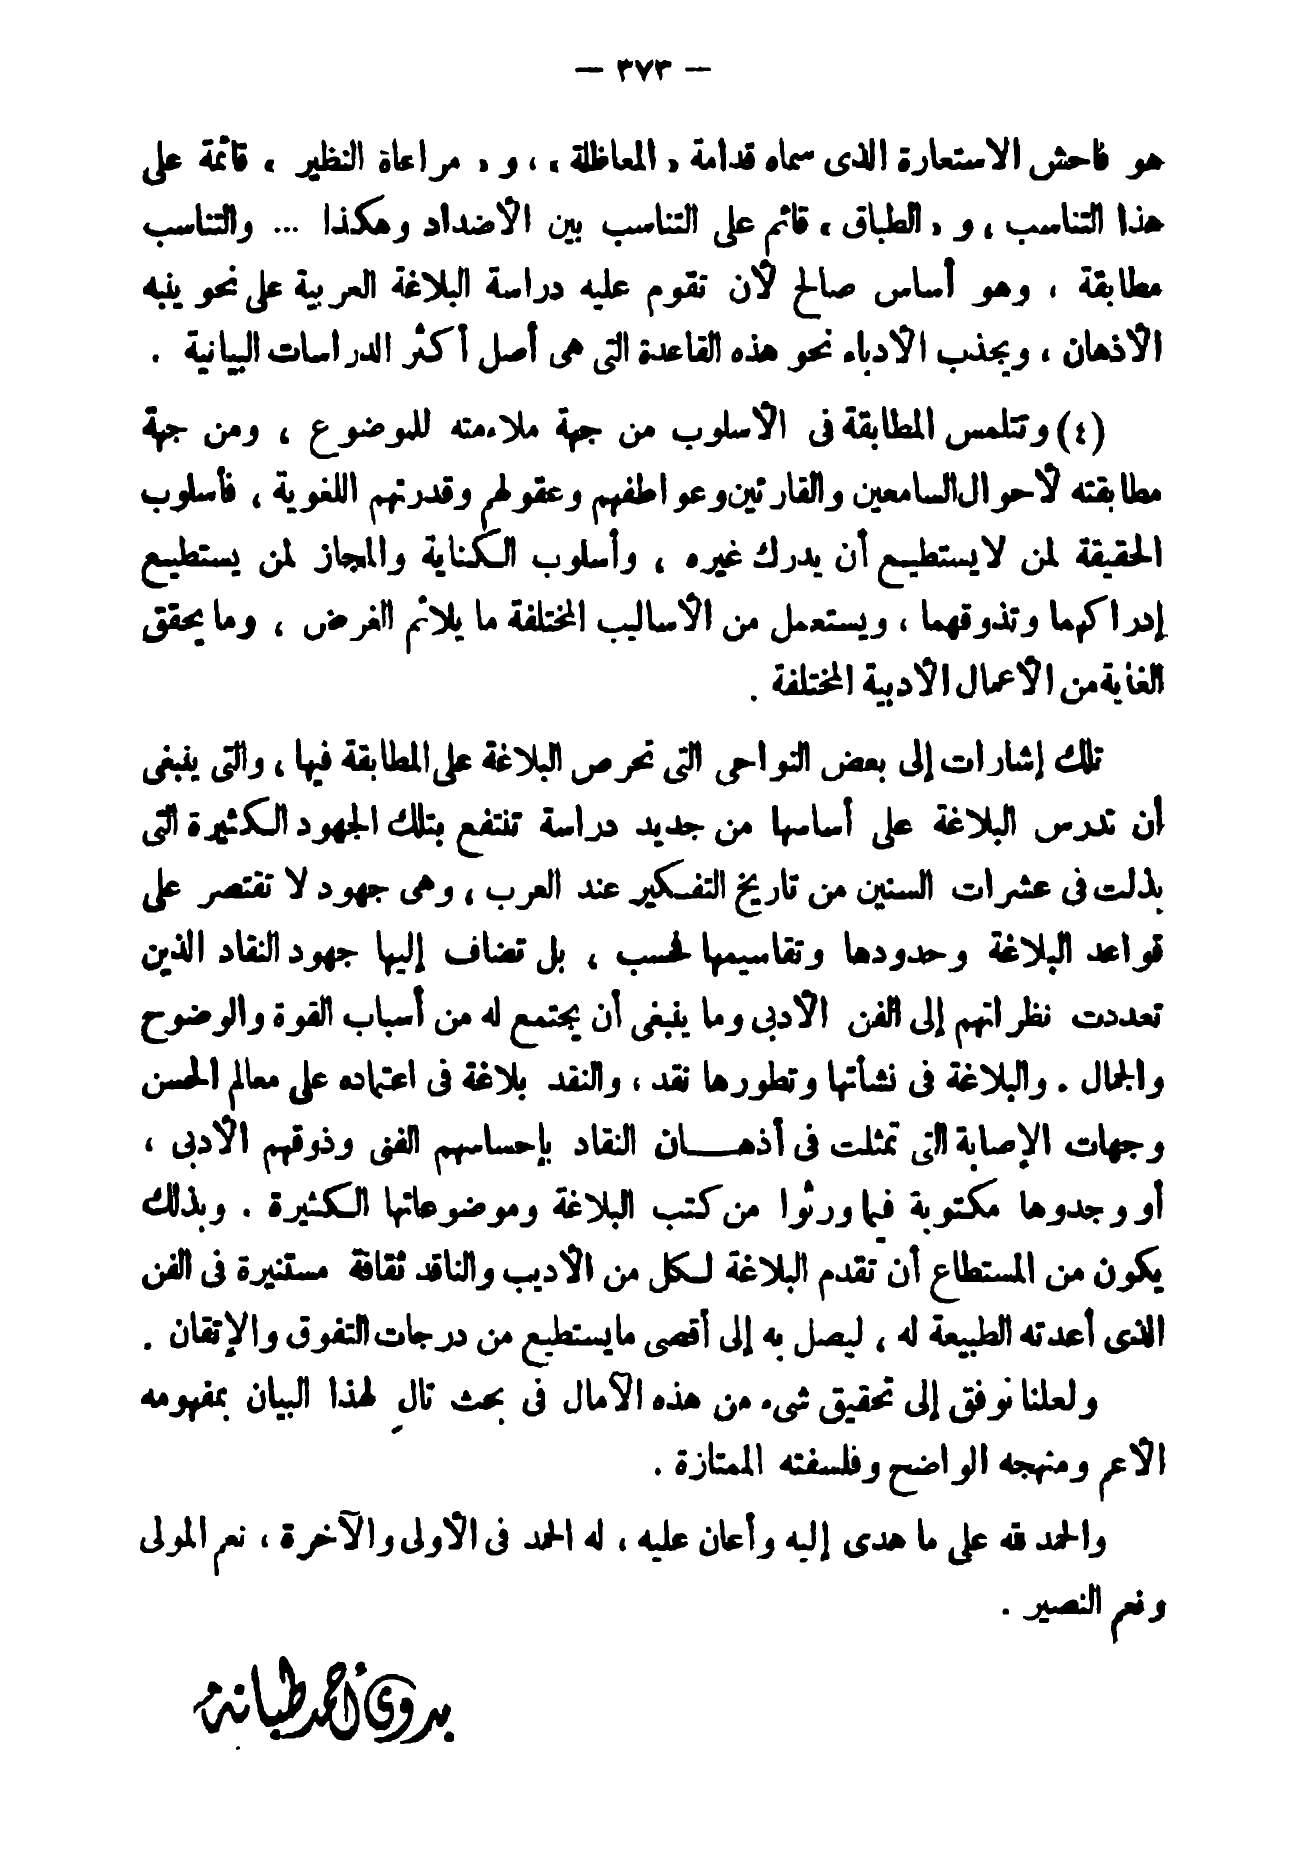 — ٣٧٣ —
هو فاحش الاستعارة الذى سماه قدامة « المعاظلة » ، و « مراعاة النظير » قائمة على
هذا التناسب ، و « الطباق » قائم على التناسب بين الأضداد وهكذا ... والتناسب
مطابقة ، وهو أساس صالح لأن تقوم عليه دراسة البلاغة العربية على نحو ينبه
الأذهان ، ويجذب الأدباء نحو هذه القاعدة التى هى أصل أكثر الدراسات البيانية .
(٤) وتتلمس المطابقة فى الأسلوب من جهة ملاءمته للموضوع ، ومن جهة
مطابقته لأحوال السامعين والقارئين وعواطفهم وعقولهم وقدرتهم اللغوية ، فأسلوب
الحقيقة لمن لا يستطيع أن يدرك غيره ، وأسلوب الكناية والمجاز لمن يستطيع
إدراكهما وتذوقهما ، ويستعمل من الأساليب المختلفة ما يلائم الغرض ، وما يحقق
الغاية من الأعمال الأدبية المختلفة .
تلك إشارات إلى بعض النواحى التى تحرص البلاغة على المطابقة فيها ، والتى ينبغى
أن تدرس البلاغة على أساسها من جديد دراسة تنتفع بتلك الجهود الكثيرة التى
بذلت فى عشرات السنين من تاريخ التفكير عند العرب ، وهى جهود لا تقتصر على
قواعد البلاغة وحدودها وتقاسيمها فحسب ، بل تضاف إليها جهود النقاد الذين
تعددت نظراتهم إلى الفن الأدبى وما ينبغى أن يجتمع له من أسباب القوة والوضوح
والجمال . والبلاغة فى نشأتها وتطورها نقد ، والنقد بلاغة فى اعتماده على معالم الحسن
وجهات الإصابة التى تمثلت فى أذهان النقاد بإحساسهم الفنى وذوقهم الأدبى ،
أو وجدوها مكتوبة فيما ورثوا من كتب البلاغة وموضوعاتها الكثيرة . وبذلك
يكون من المستطاع أن تقدم البلاغة لكل من الأديب والناقد ثقافة مستنيرة فى الفن
الذى أعدته الطبيعة له ، ليصل به إلى أقصى ما يستطيع من درجات التفوق والإتقان .
ولعلنا نوفق إلى تحقيق شىء من هذه الآمال فى بحث تالٍ لهذا البيان بمفهومه
الأعم ومنهجه الواضح وفلسفته الممتازة .
والحمد لله على ما هدى إليه وأعان عليه ، له الحمد فى الأولى والآخرة ، نعم المولى
ونعم النصير .
بدوى أحمد طبانة